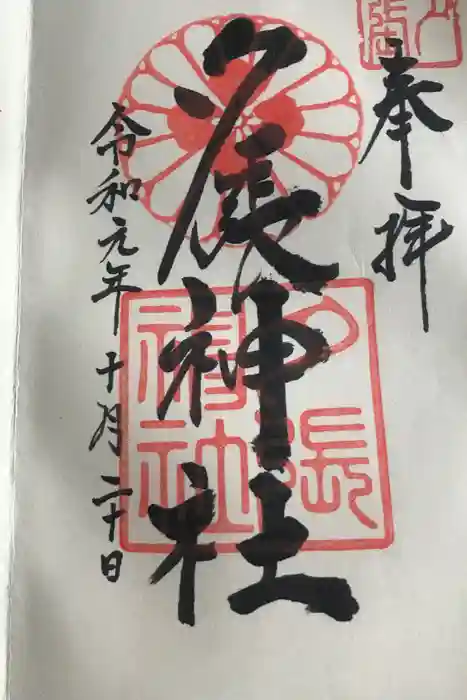 奉拝
夕張神社
夕張
神社
令和元年十月二十日